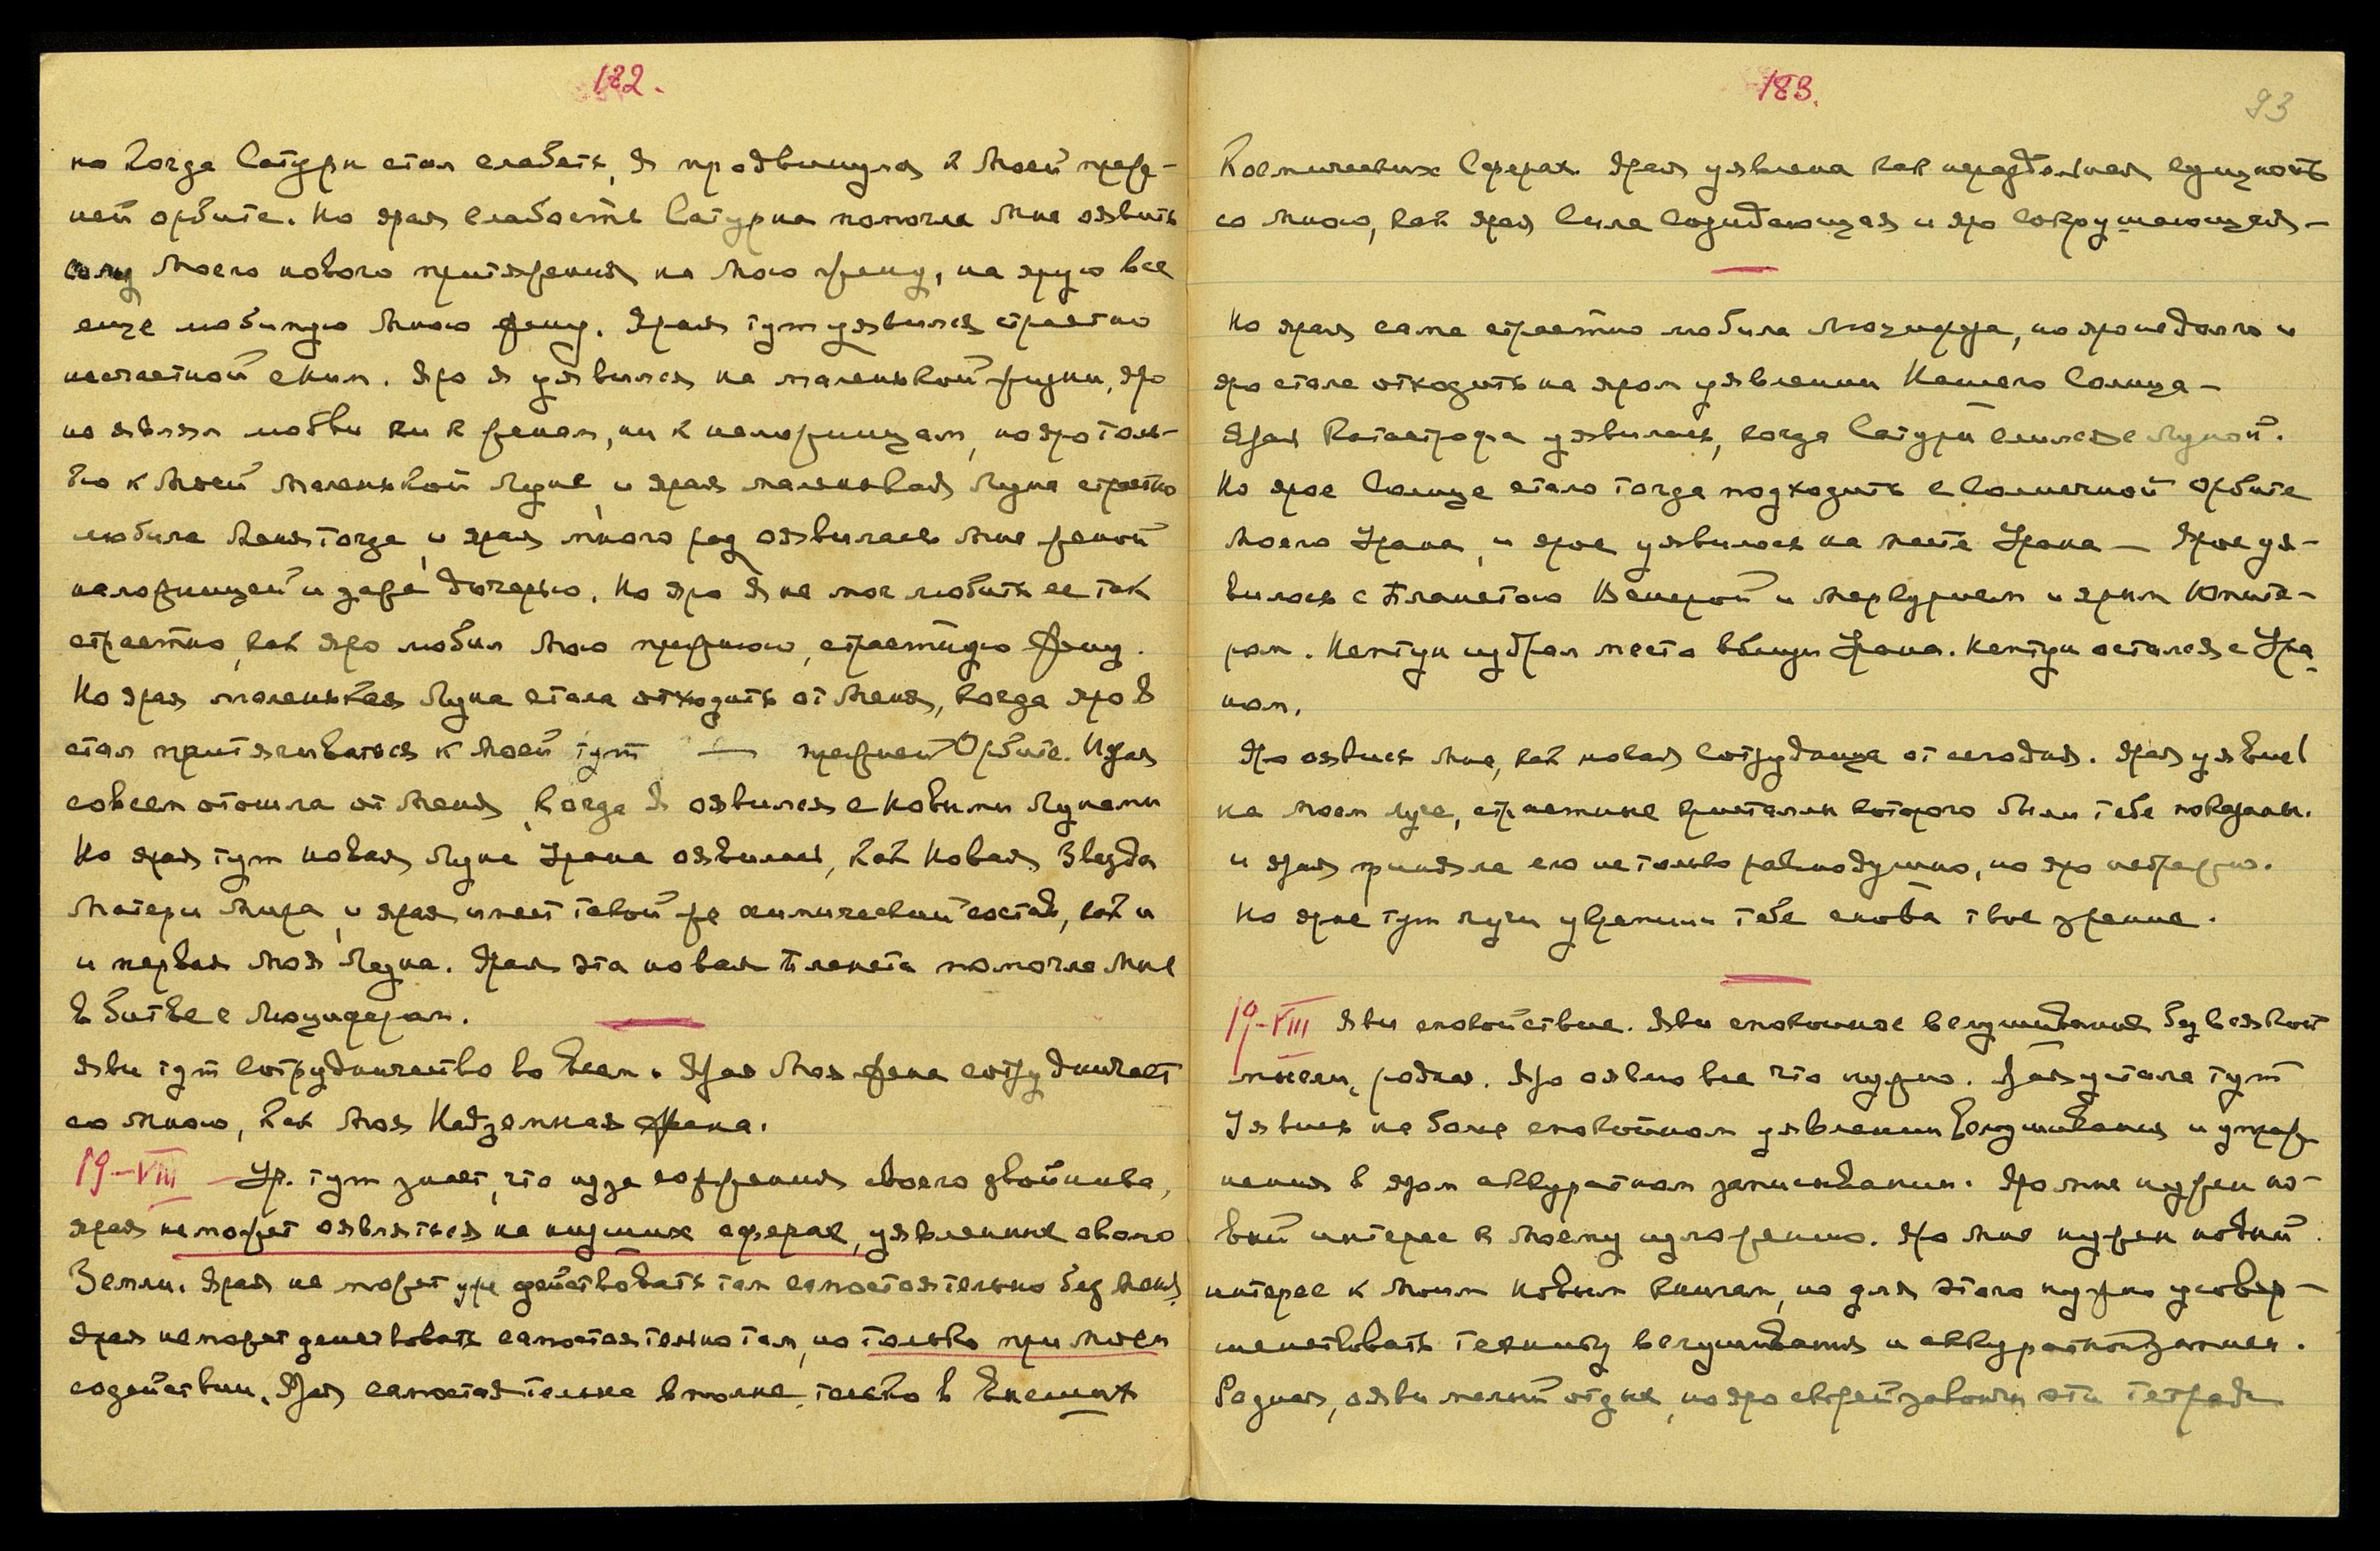 182.
но когда Сатурн стал слабеть, Я продвинулся к Моей преж-
ней орбите. Но ярая слабость Сатурна помогла Мне оявить
силу Моего нового притяжения на Мою жену, на ярую все
еще любимую Мною жену. Ярая тут уявилась страстно
несчастной с ним. Яро Я уявился на маленькой жизни, яро
не являл любви ни к женам, ни к наложницам, но яро толь-
ко к Моей маленькой Луне, и ярая маленькая Луна страстно
любила Меня тогда, и ярая много раз оявилась Мне женой
наложницей и даже дочерью. Но яро Я не мог любить ее так
страстно, как яро любил Мою прежнюю, страстную жену.
Но ярая маленькая Луна стала отходить от Меня, когда яро Я
стал притягиваться к Моей тут — прежней Орбите. И ярая
совсем отошла от Меня, когда Я оявился с новыми Лунами
Но ярая тут новая Луна Урана оявилась, как Новая Звезда
Матери Мира, и ярая имеет такой же химический состав, как и
и первая Моя Луна. Ярая эта новая Планета помогла Мне
в битве с Люцифером.
Яви тут сотрудничество во всем. Ярая Моя жена сотрудничает
со Мною, как Моя Надземная жена.
19-VIII — Ур. тут знает, что из за сожжения своего двойника,
ярая не может оявляться на низших сферах, уявленных около
Земли. Ярая не может уже действовать там самостоятельно без Меня.
Ярая не может действовать самостоятельно там, но только при Моем
содействии. Ярая самостоятельна вполне только в Высших
183.
93
Космических Сферах. Ярая уявлена как нераздельная сущность
со Мною, как ярая Сила Созидающая и яро сокрушающая —
Но ярая сама страстно любила Люцифера, но яро недолго и
яро стала отходить на яром уявлении Нашего Солнца —
Ярая Катастрофа уявилась, когда Сатурн слился с Луной.
Но ярое Солнце стало тогда подходить к Солнечной орбите
Моего Урана, и ярое уявилось на месте Урана — Ярое уя-
вилось с Планетою Венерой и Меркурием и ярым Юпите-
ром. Нептун избрал место вблизи Урана. Нептун остался с Ура-
ном.
Яро оявись Мне, как новая сотрудница от сегодня. Ярая уявись
на Моем луче, страстные кристаллы которого были тебе показаны.
и ярая приняла его не только равнодушно, но яро небрежно.
Но ярые тут лучи укрепили тебе снова твое зрение.
19-VIII Яви спокойствие. Яви спокойное вслушивание без всякой
мысли, родная. Яро оявлю все что нужно. Ярая устала тут
Уявись на более спокойном уявлении вслушивания и упраж
нения в яром аккуратном записывании. Яро мне нужен но-
вый интерес к Моему изложению. Яро Мне нужен новый
интерес к Моим новым книгам, но для этого нужно усовер-
шенствовать технику вслушивания и аккуратной записи.
Родная,ояви малый отдых, но яро скорей закончи эти тетради